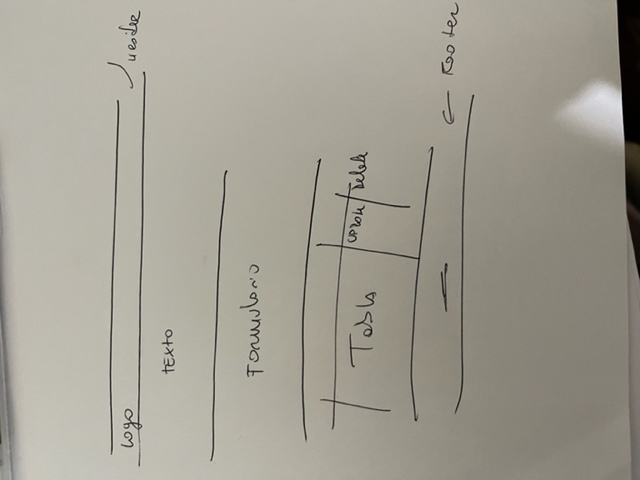 Logo
header
TEXTO
Formulario
Tabla
update
Delete
Footer